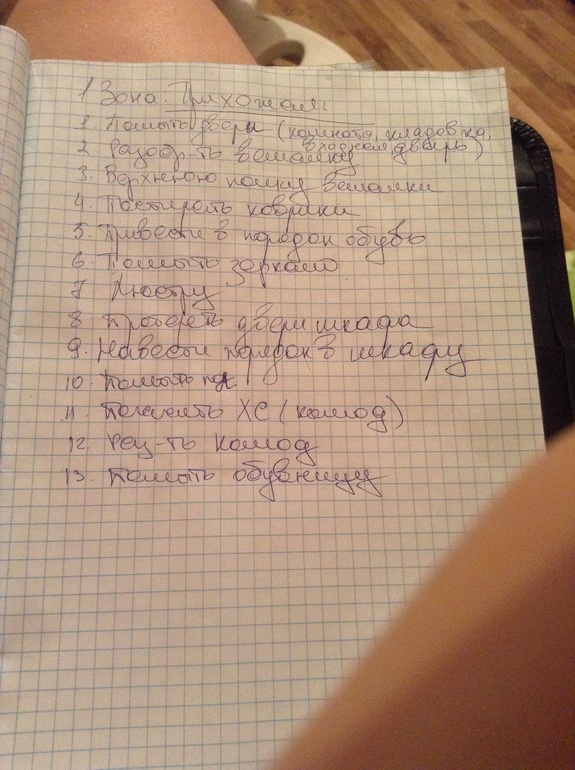 1 Зона: Прихожая:
1. Помыть двери (комната, кладовка,
входная дверь)
2. Разобр-ть вешалку
3. Верхнюю полку вешалки
4. Постирать коврики
5. Привести в порядок обувь
6. Помыть зеркало
7 Люстру
8 Протереть двери шкафа
9. Навести порядок в шкафу
10. Помыть пол
11. ХС (комод)
12. комод
13. Помыть обувницу